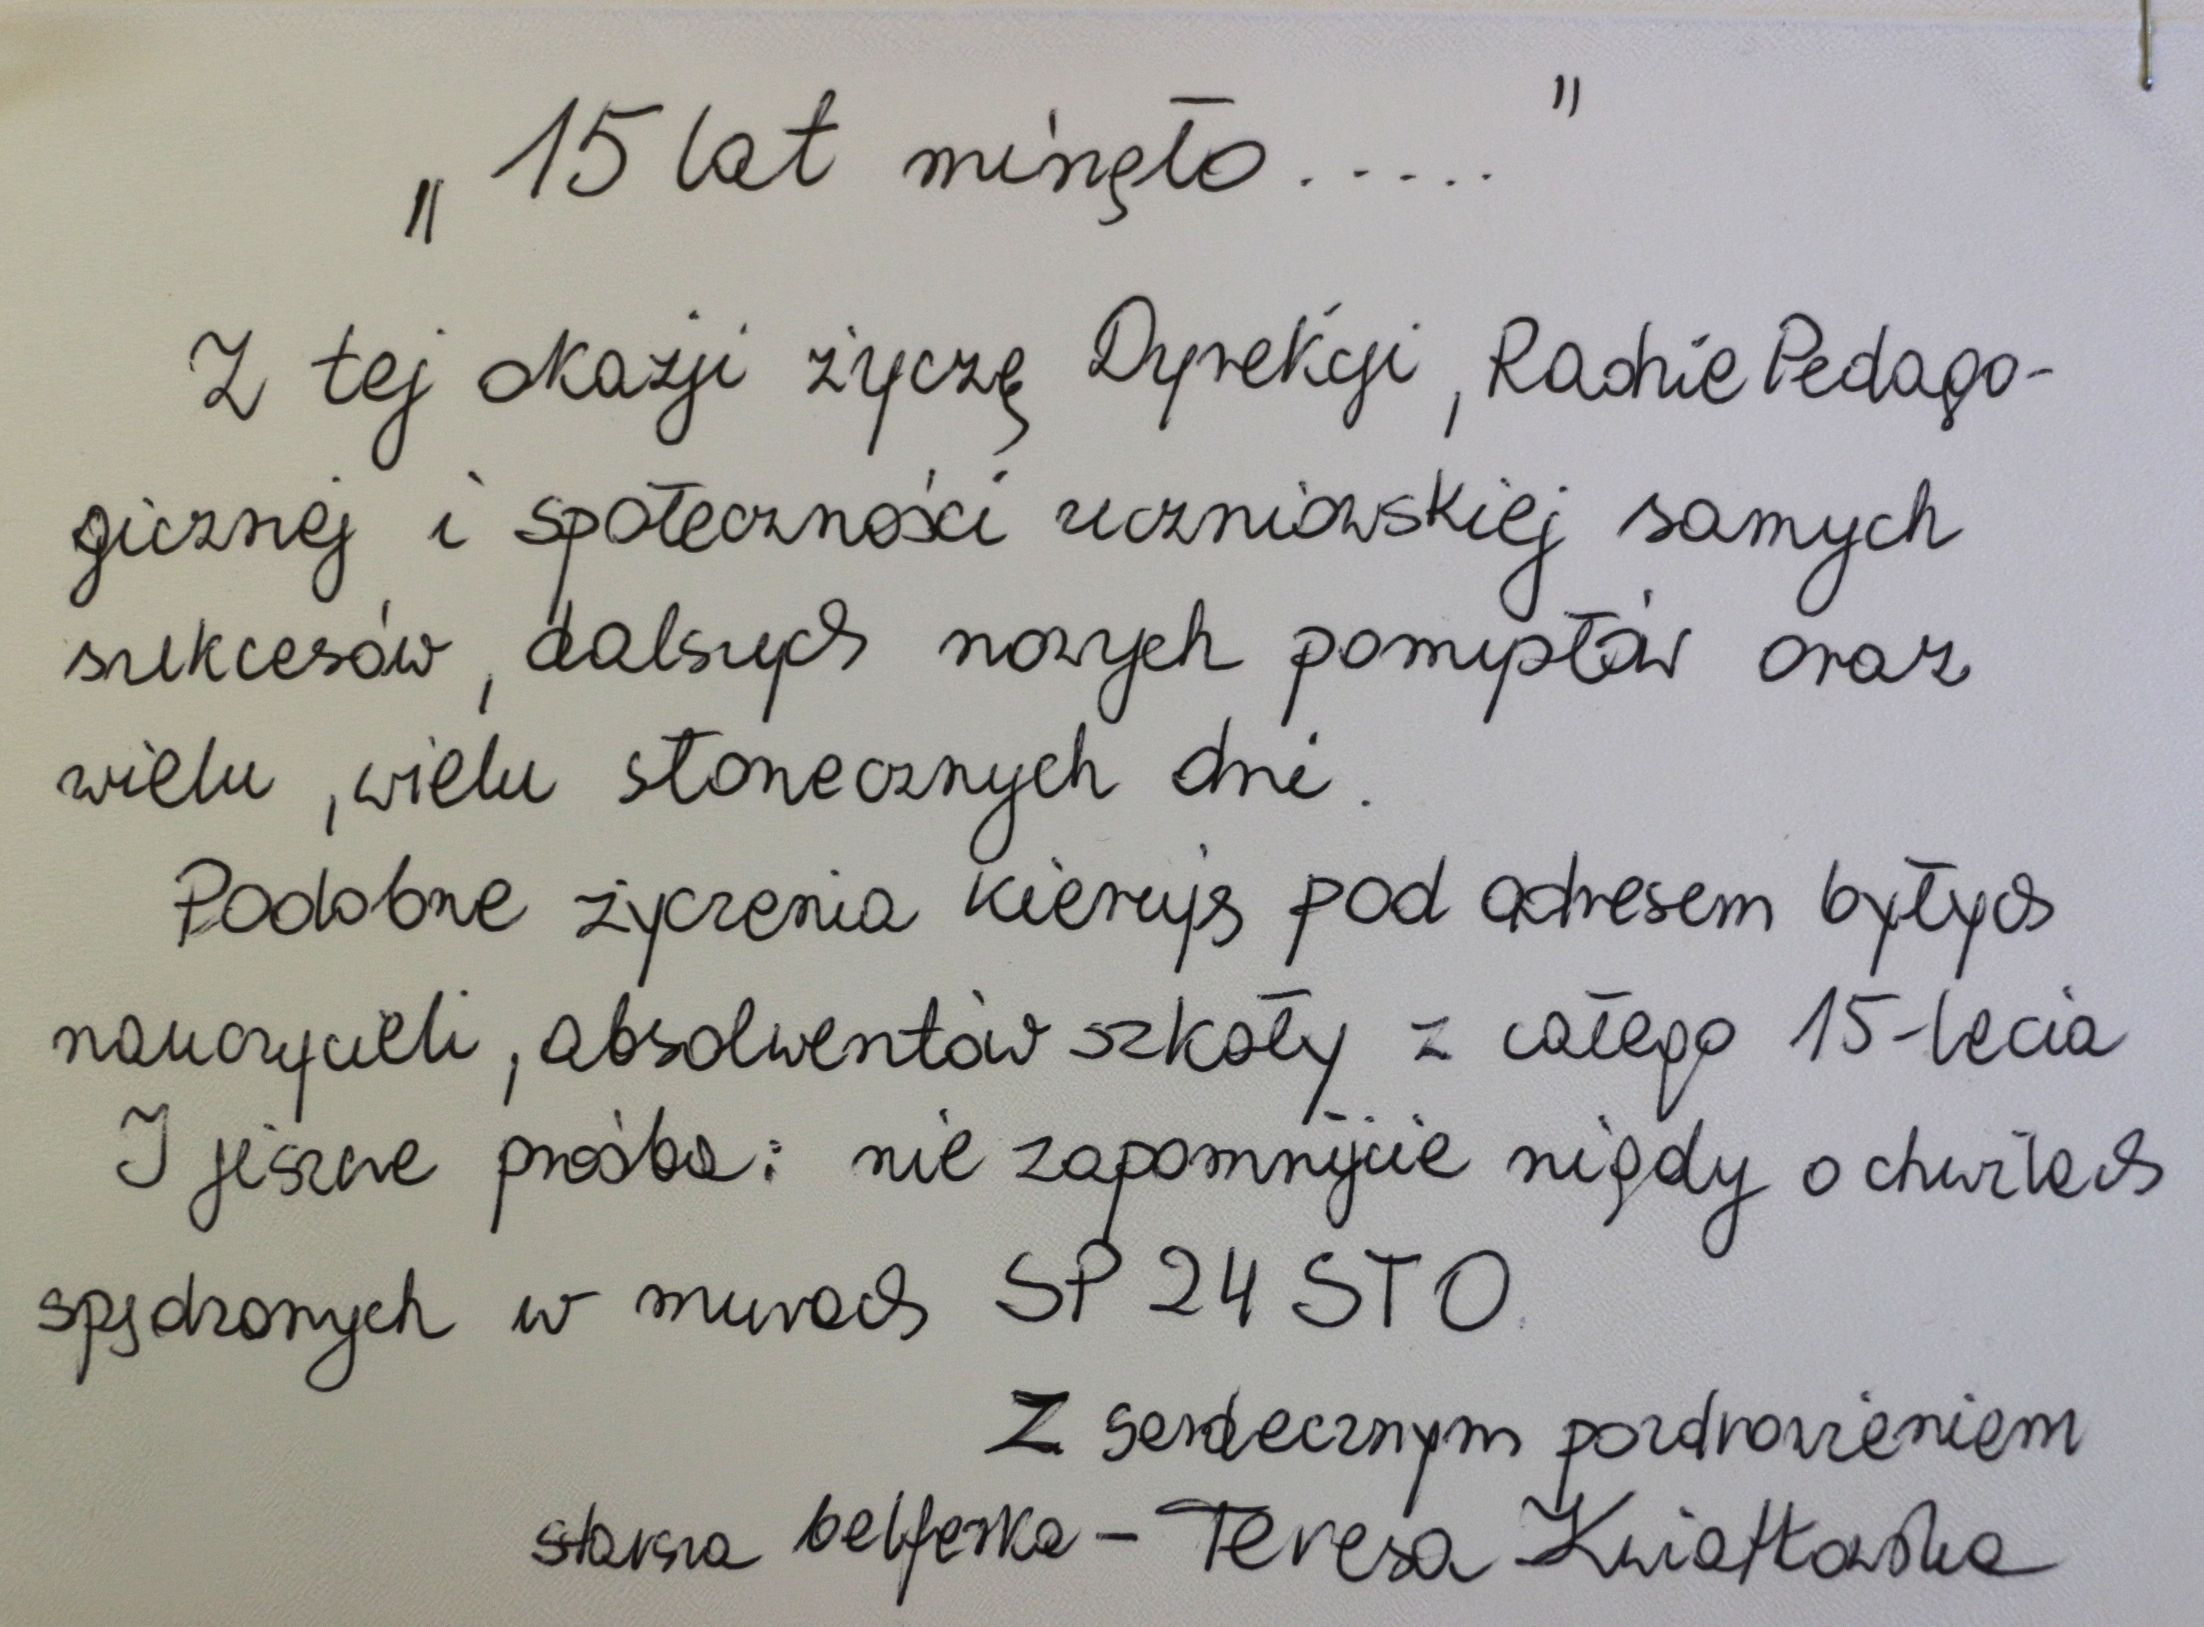 „15 lat minęło.....”
Z tej okazji życzę Dyrekcji, Radzie Pedago-
gicznej i społeczności uczniowskiej samych
sukcesów, dalszych nowych pomysłów oraz
wielu, wielu słonecznych dni.
Podobne życzenia kieruję pod adresem byłych
nauczycieli, absolwentów szkoły z całego 15-lecia
I jeszcze prośba: nie zapomnijcie nigdy o chwilach
spędzonych w murach SP 24 STO.
Z serdecznym pozdrowieniem
starsza belferka - Teresa Kwiatkowska